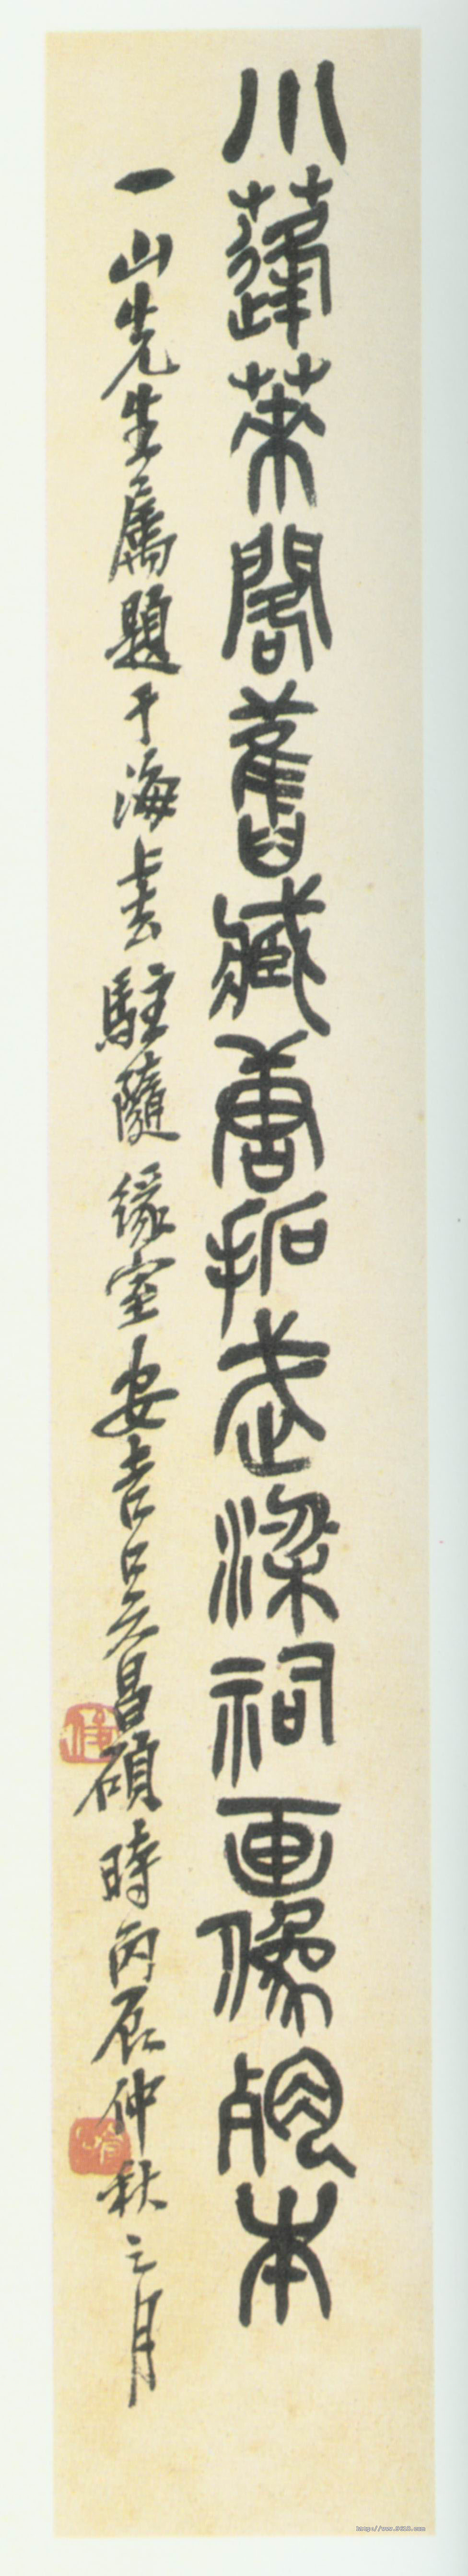 小蓬萊閣舊藏唐拓武梁祠画像本
一山先生屬題于海上去駐隨緣室安吉吳昌碩時丙辰仲秋之月